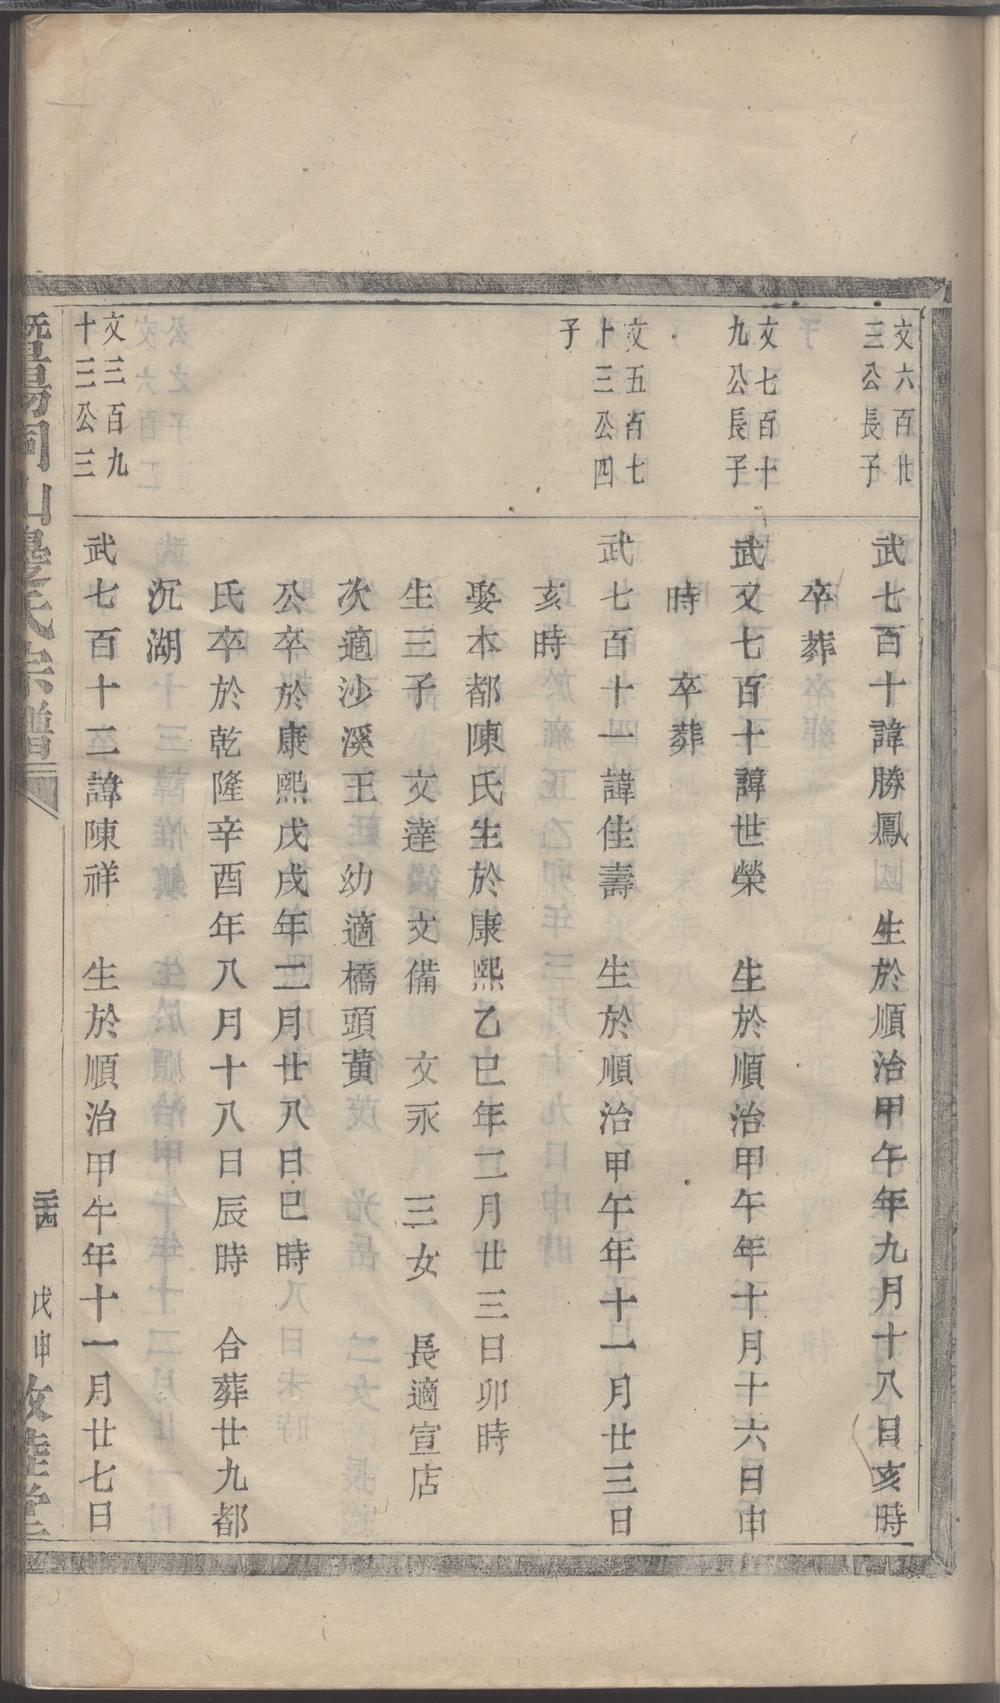 文六百廿
三公長子
武七百十諱勝鳳　生於順治甲午年九月十八日亥時
卒葬
文七百十
九公長子
武又七百十諱世榮　生於順治甲午年十月十六日申
時　卒葬
文五百七
十三公四
子
武七百十一諱佳壽　生於順治甲午年十一月廿三日
亥時
娶本都陳氏生於康熙乙巳年二月廿三日卯時
生三子　文達　文備　文永　三女　長適宣店
次適沙溪王　幼適橋頭黃
公卒於康熙戊戌年二月廿八日巳時
氏卒於乾隆辛酉年八月十八日辰時　合葬廿九都
沉湖
文三百九
十三公三
武七百十二諱陳祥　生於順治甲午年十一月廿七日
暨陽同山邊氏宗譜
戊申
敦睦堂